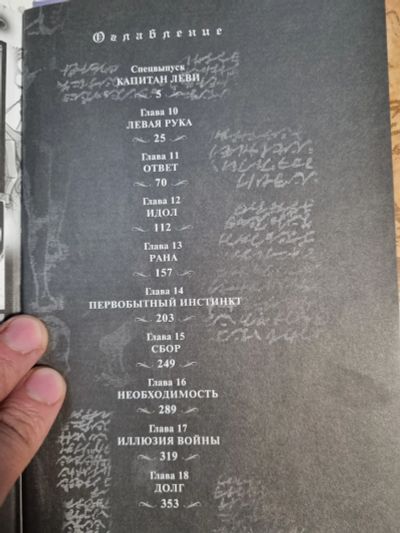 Оглавление
Спецвыпуск
КАПИТАН ЛЕВИ
5
Глава 10
ЛЕВАЯ РУКА
25
Глава 11
ОТВЕТ
70
Глава 12
ИДОЛ
112
Глава 13
РАНА
157
Глава 14
ПЕРВОБЫТНЫЙ ИНСТИНКТ
203
Глава 15
СБОР
249
Глава 16
НЕОБХОДИМОСТЬ
289
Глава 17
ИЛЛЮЗИЯ ВОЙНЫ
319
Глава 18
ДОЛГ
353